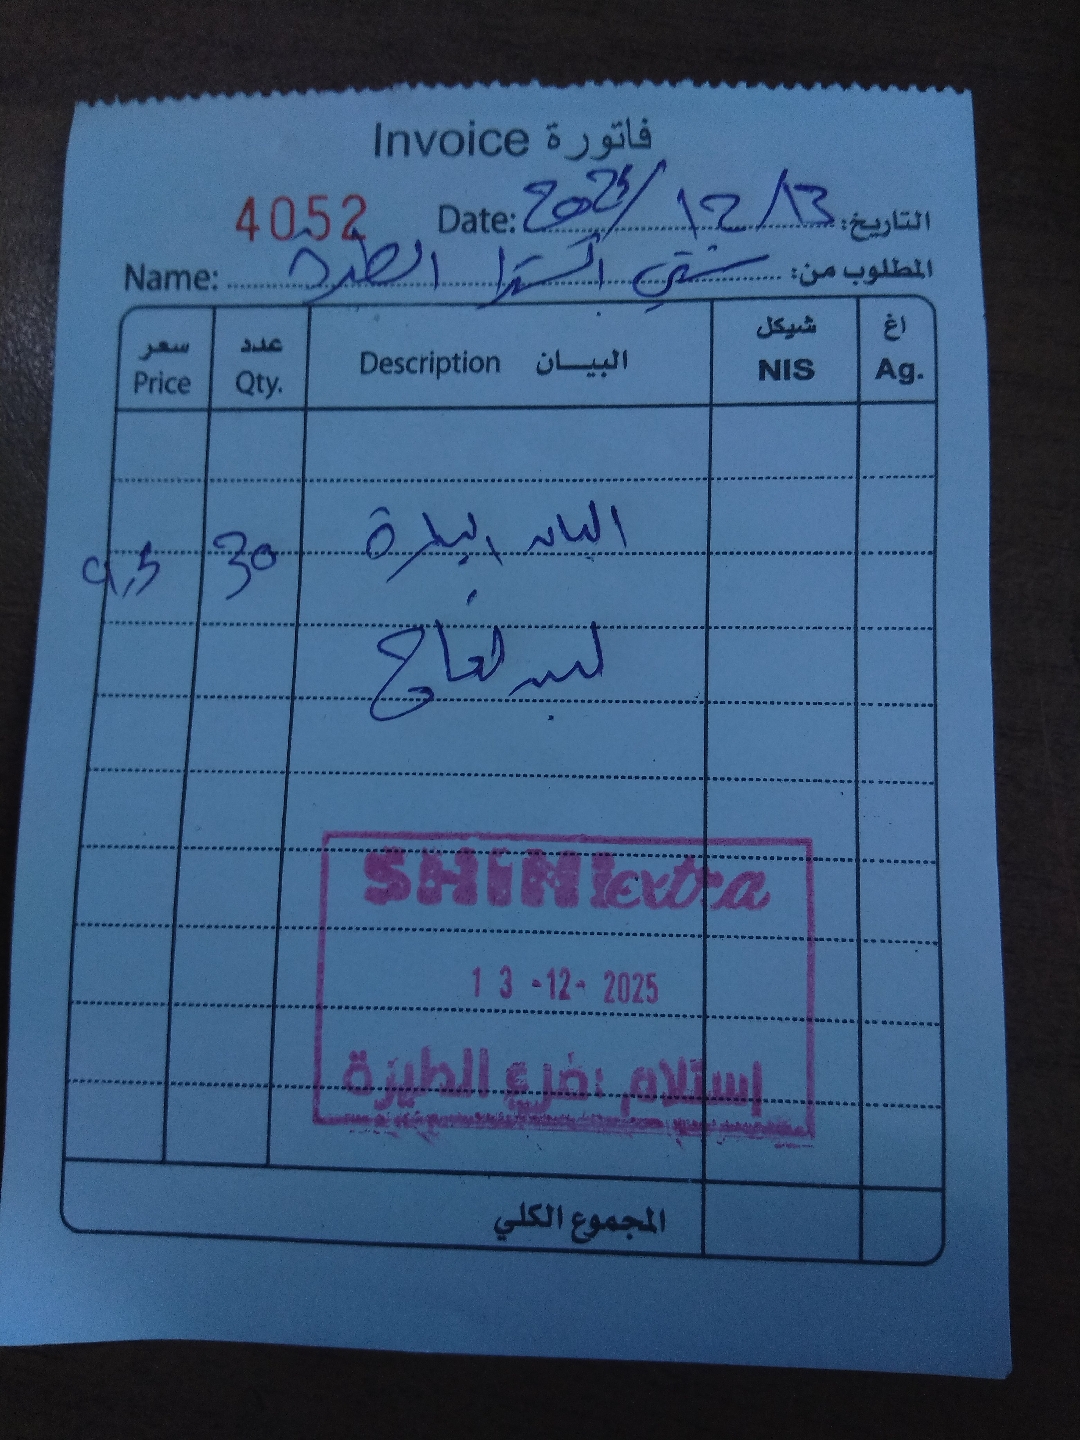 Invoice فاتورة
4052 Date: 2025/12/13 التاريخ:
Name: شني اكسترا الطيرة المطلوب من:
سعر عدد البيان شيكل اغ
Price Qty. Description NIS Ag.
9,5 30 البان البيرة
لبن نعاج
SHINI extra
13-12-2025
إستلام فرع الطيرة
المجموع الكلي